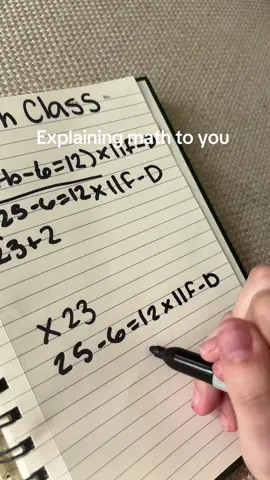 n Class
Explaining math to you
-b-6=12)x11F-D
25-6=12x11F-D
23+2
x23
25-6=12x11F-D